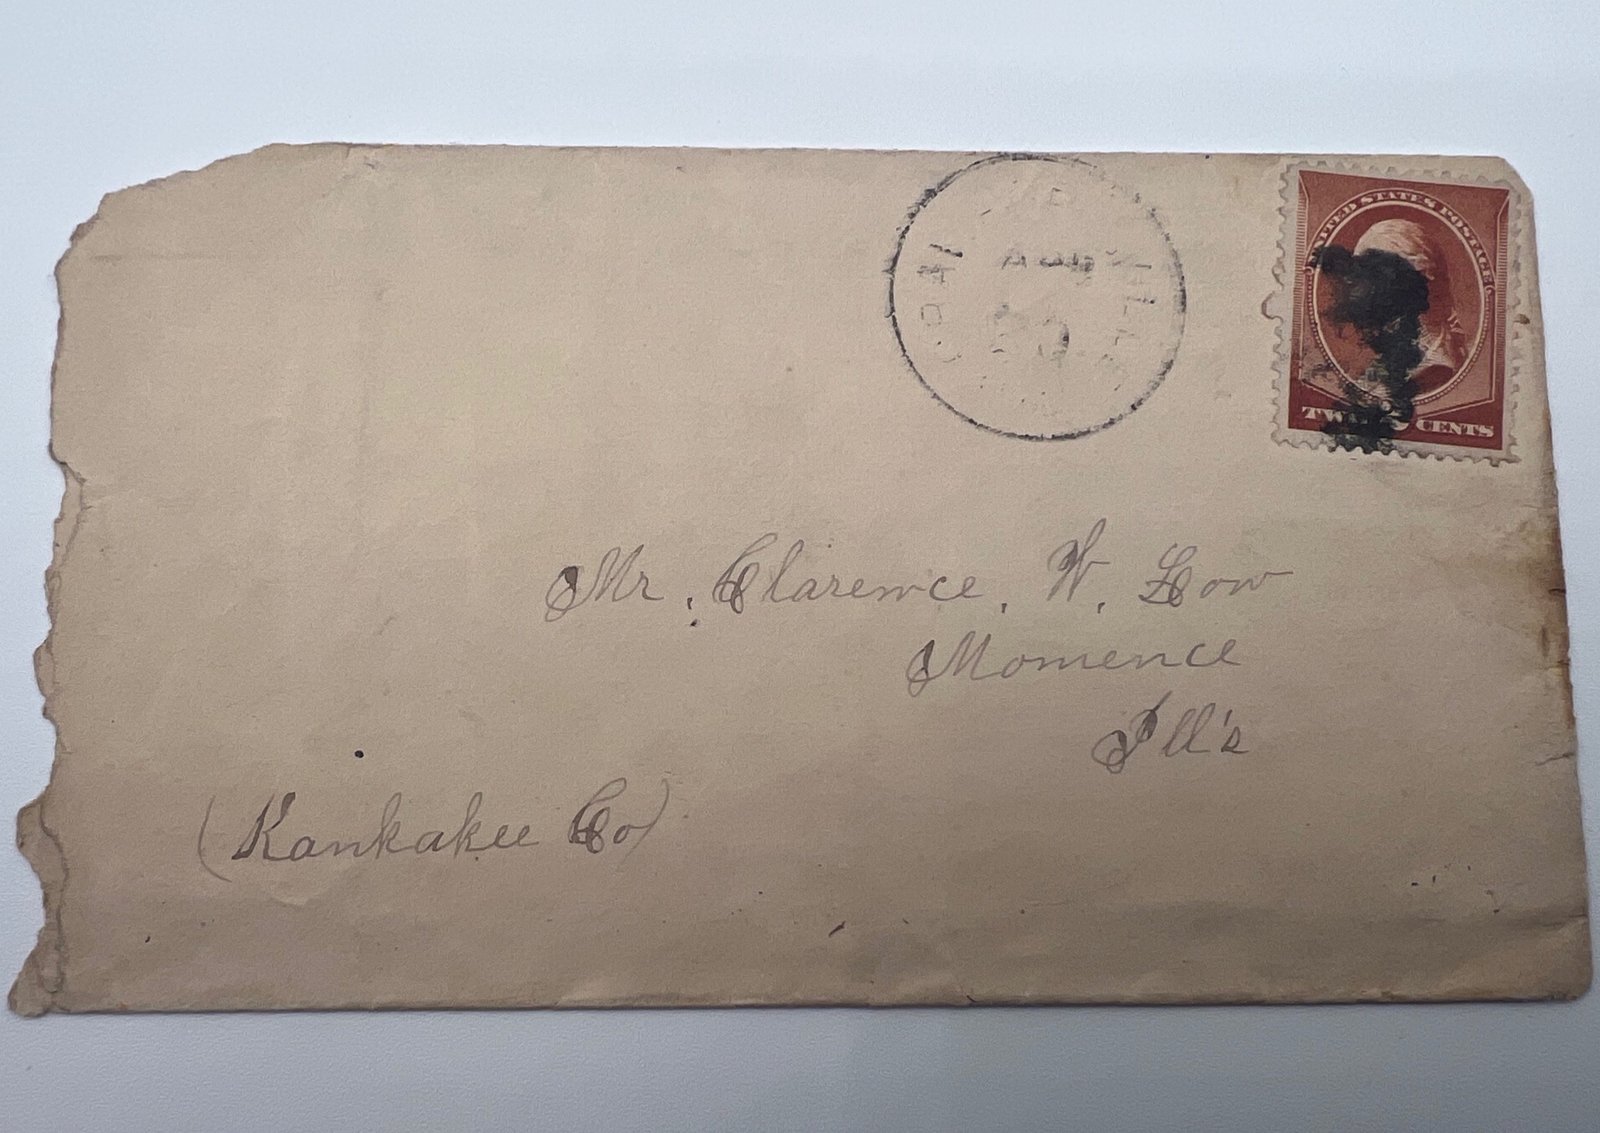 UNITED STATES POSTAGE
TWO CENTS
Mr. Clarence. W. Low
Momence
Ill's
(Kankakee Co)